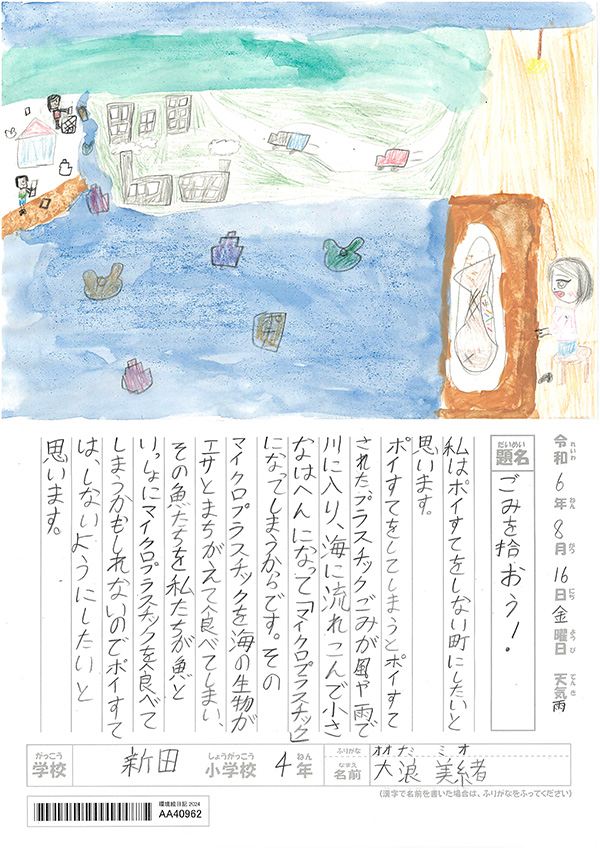 令和6年8月16日金曜日 天気雨
れいわ ねん がつ にち ようび てんき
だいめい
題名
ごみを拾おう!
私はポイすてをしない町にしたいと
思います。
ポイすてをしてしまうとポイすて
されたプラスチックごみが風や雨で
川に入り、海に流れこんで小さ
なはへんになって「マイクロプラスチック」
になってしまうからです。その
マイクロプラスチックを海の生物が
エサとまちがえて食べてしまい、
その魚たちを私たちが魚と
いっしょにマイクロプラスチックを食べて
しまうかもしれないのでポイすて
は、しないようにしたいと
思います。
がっこう
学校
新田
しょうがっこう
小学校
4年
ねん
ふりがな
オオナミ ミオ
なまえ
名前
大浪 美緒
(漢字で名前を書いた場合は、ふりがなをふってください)
環境絵日記2024
AA40962